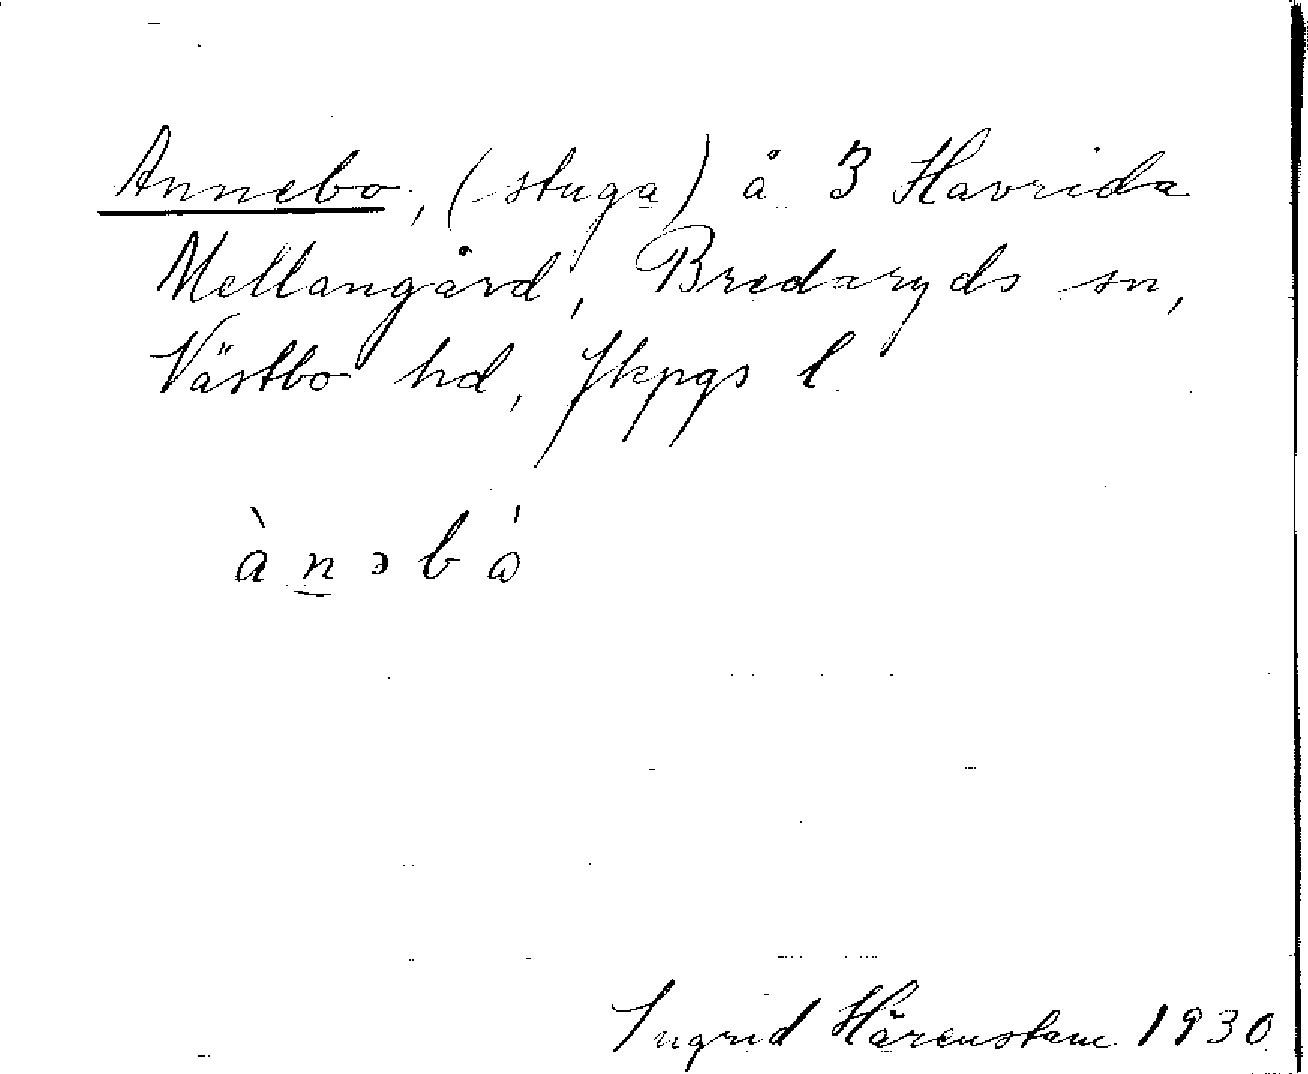 Annebo, (stuga) å 3 Havrida
Mellangård, Bredaryds sn,
Västbo hd, Jkpgs l.
àn̲əbó
Ingrid Härenstam 1930